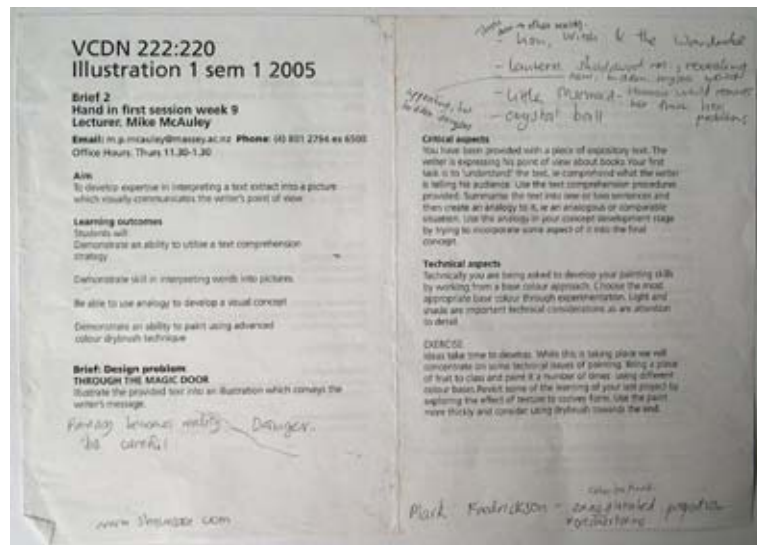 VCDN 222:220
Illustration 1 sem 1 2005
Brief 2
Hand in first session week 9
Lecturer. Mike McAuley
Email: m.p.mcauley@massey.ac.nz Phone: (4) 801 2794 ex 6500
Office Hours: Thurs 11.30-1.30
Aim
To develop expertise in interpreting a text extract into a picture
which visually communicates the writer's point of view
Learning outcomes
Students will
Demonstrate an ability to utilise a text comprehension
strategy
Demonstrate skill in interpreting words into pictures.
Be able to use analogy to develop a visual concept
Demonstrate an ability to paint using advanced
colour drybrush technique
Brief: Design problem
THROUGH THE MAGIC DOOR
Illustrate the provided text into an illustration which conveys the
writer's message.
Fantasy becomes reality Danger.
be careful
- Lion, Witch & the Wardrobe
- Little Mermaid
- crystal ball
Critical aspects
You have been provided with a piece of expository text. The
writer is expressing his point of view about books. Your first
task is to 'understand' the text, ie comprehend what the writer
is telling his audience. Use the text comprehension procedures
provided. Summarise the text into one or two sentences and
then create an analogy to it, ie an analogous or comparable
situation. Use the analogy in your concept development stage
by trying to incorporate some aspect of it into the final
concept.
Technical aspects
Technically you are being asked to develop your painting skills
by working from a base colour approach. Choose the most
appropriate base colour through experimentation. Light and
shade are important technical considerations as are attention
to detail.
EXERCISE
Ideas take time to develop. While this is taking place we will
concentrate on some technical issues of painting. Bring a piece
of fruit to class and paint it a number of times using different
colour bases. Revisit some of the learning of your last project by
exploring the effect of texture to convey form. Use the paint
more thickly and consider using drybrush towards the end.
Mark Fredrickson - exaggerated